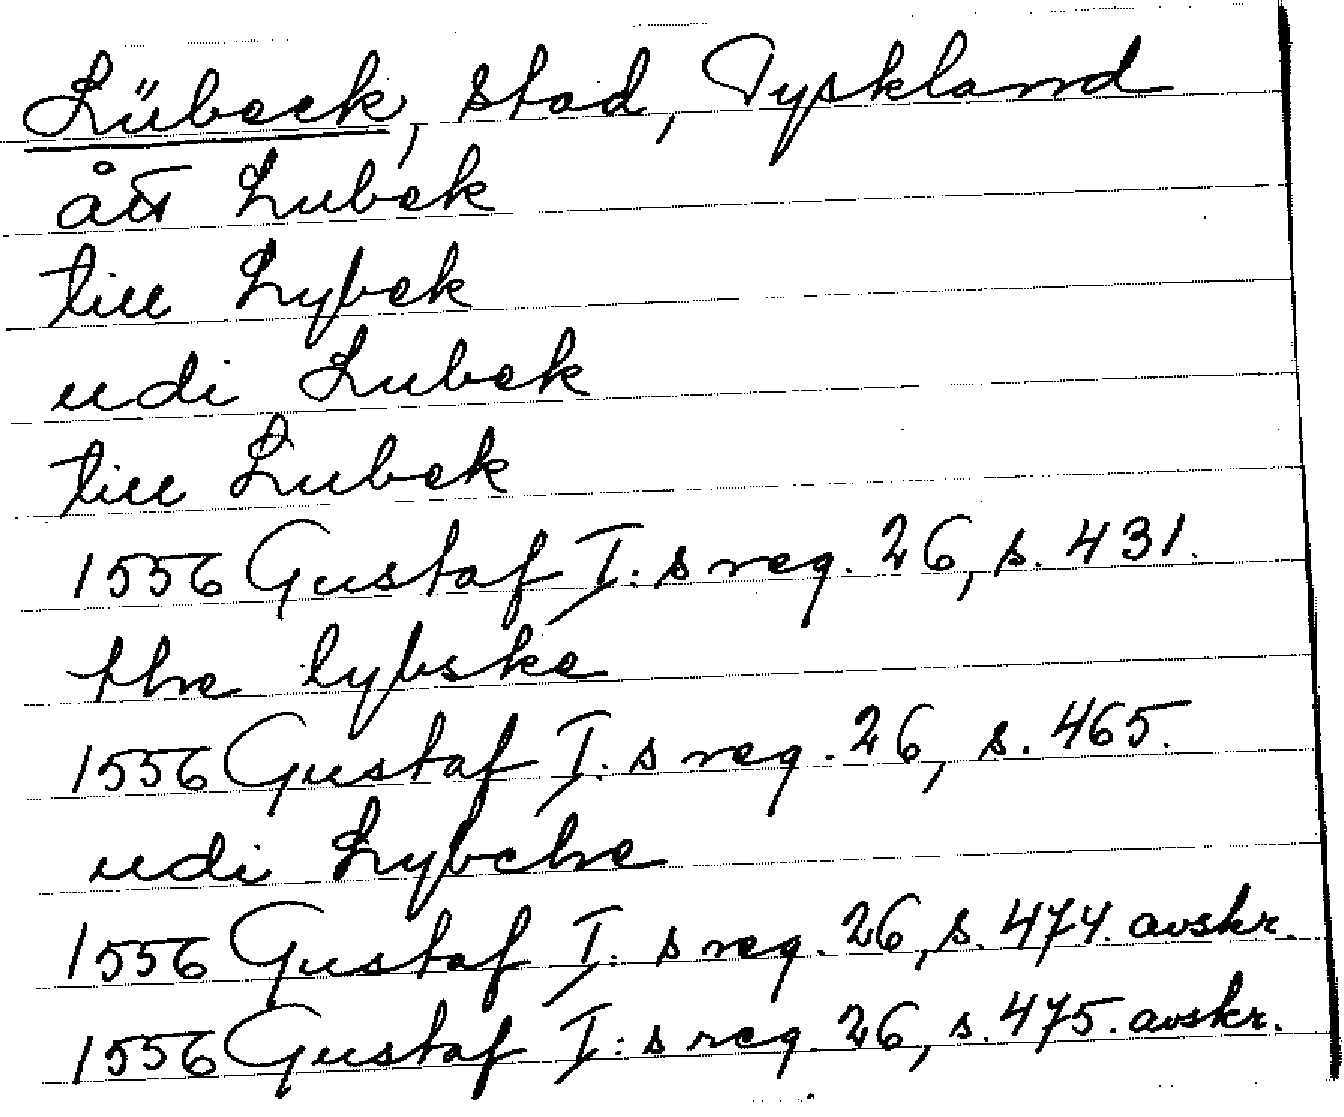 Lübeck, stad, Tyskland
ått Lubek
till Lybek
udi Lubek
till Lubek
1556 Gustaf I:s reg. 26, s. 431.
the lybske
1556 Gustaf I:s reg. 26, s. 465.
udi Lybche
1556 Gustaf I:s reg. 26, s. 474. avskr.
1556 Gustaf I:s reg. 26, s. 475. avskr.